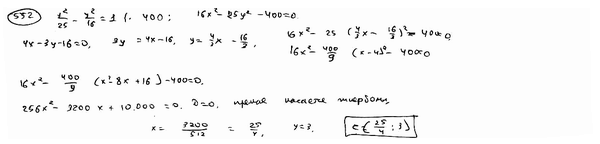 552) x²/25 - y²/16 = 1 |· 400; 16x² - 25y² - 400 = 0
4x - 3y - 16 = 0, 3y = 4x - 16, y = 4/3 x - 16/3, 16x² - 25 (4/3 x - 16/3)² - 400 = 0
16x² - 400/9 (x - 4)² - 400 = 0
16x² - 400/9 (x² - 8x + 16) - 400 = 0,
256x² - 3200x + 10.000 = 0. D = 0, прямая касается гиперболы
x = 3200/512 = 25/4, y = 3. C(25/4; 3)